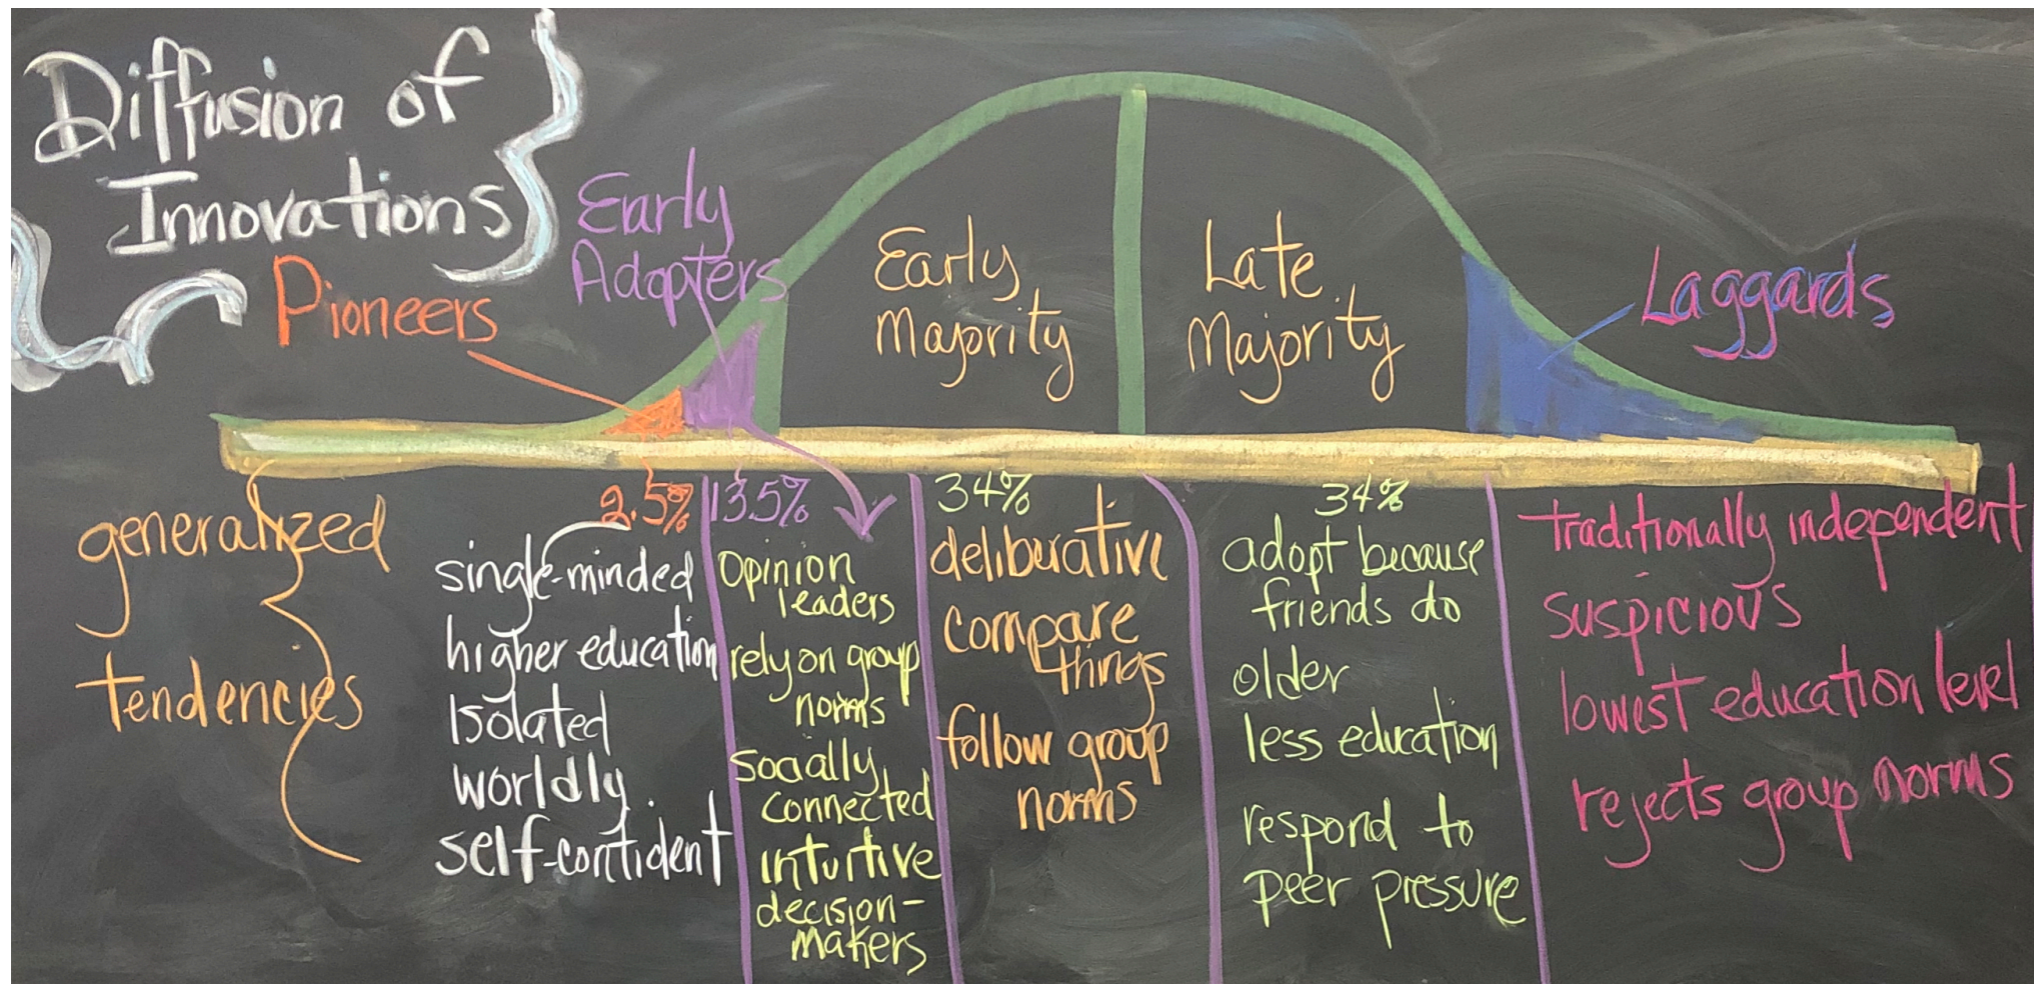 Diffusion of
Innovations
Pioneers
Early
Adopters
Early
Majority
Late
Majority
Laggards
generalized
tendencies
2.5%
single-minded
higher education
Isolated
worldly
self-confident
13.5%
Opinion
leaders
rely on group
norms
Socially
connected
intuitive
decision-
makers
34%
deliberative
compare
things
follow group
norms
34%
adopt because
friends do
older
less education
respond to
peer pressure
traditionally independent
suspicious
lowest education level
rejects group norms